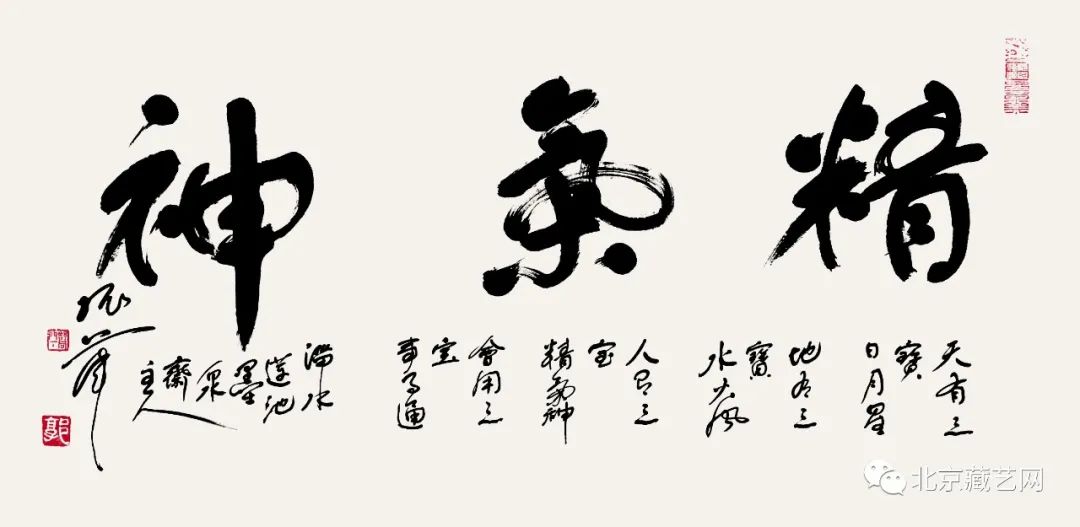 精氣神
天有三
寶
日月星
地有三
寶
水火風
人有三
宝
精氣神
會用三
宝
事通
蓮池
墨
泉
齋
主人
郭
北京藏艺网